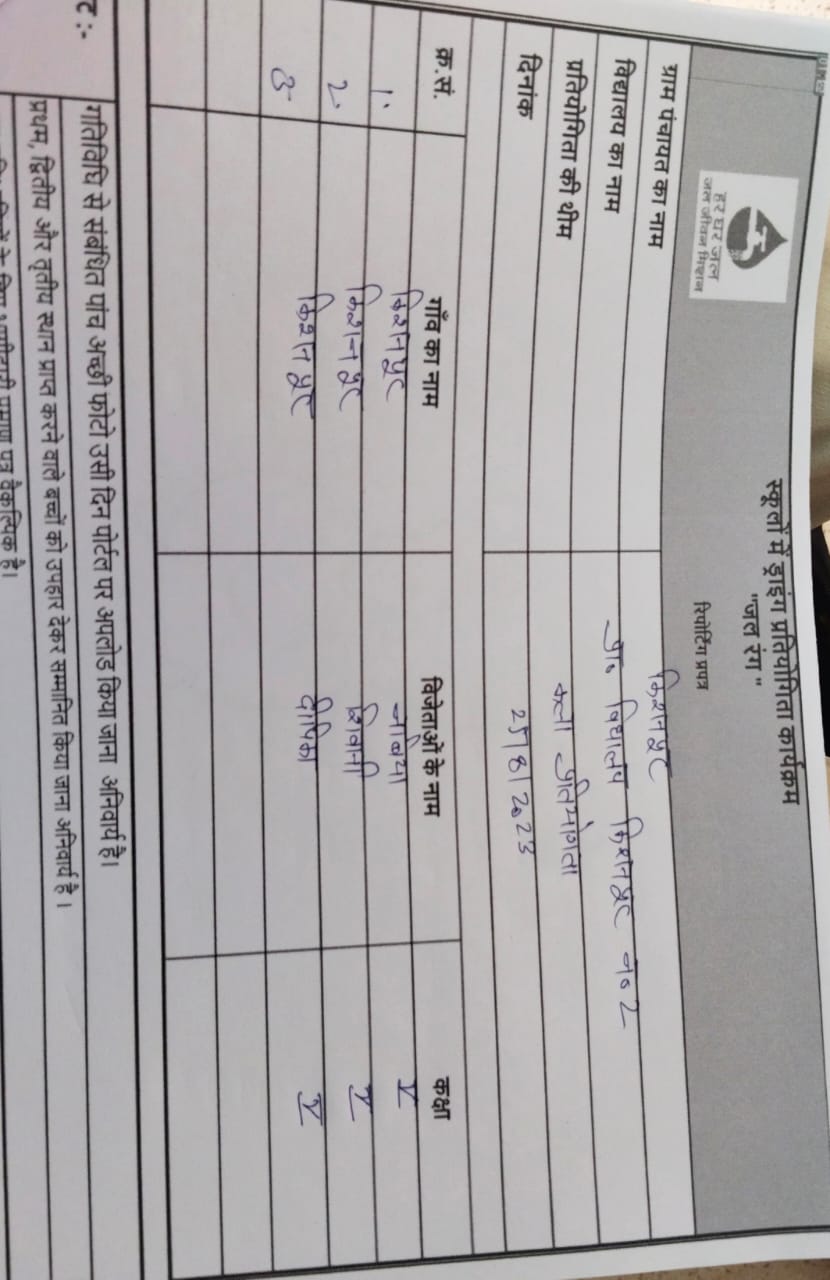 हर घर जल
जल जीवन मिशन
स्कूलों में ड्राइंग प्रतियोगिता कार्यक्रम
"जल रंग"
रिपोर्टिंग प्रपत्र
ग्राम पंचायत का नाम किशनपुर
विद्यालय का नाम प्रा० विद्यालय किशनपुर न० 2
प्रतियोगिता की थीम कला प्रतियोगता
दिनांक 25/8/2023
क्र.सं. गाँव का नाम विजेताओं के नाम कक्षा
1. किशनपुर नाबिया V
2. किशनपुर शिवानी V
3 किशनपुर दीपिका V
ट:- गतिविधि से संबंधित पांच अच्छी फोटो उसी दिन पोर्टल पर अपलोड किया जाना अनिवार्य है।
प्रथम, द्वितीय और तृतीय स्थान प्राप्त करने वाले बच्चों को उपहार देकर सम्मानित किया जाना अनिवार्य है।
प्रमाण पत्र वैकल्पिक है।